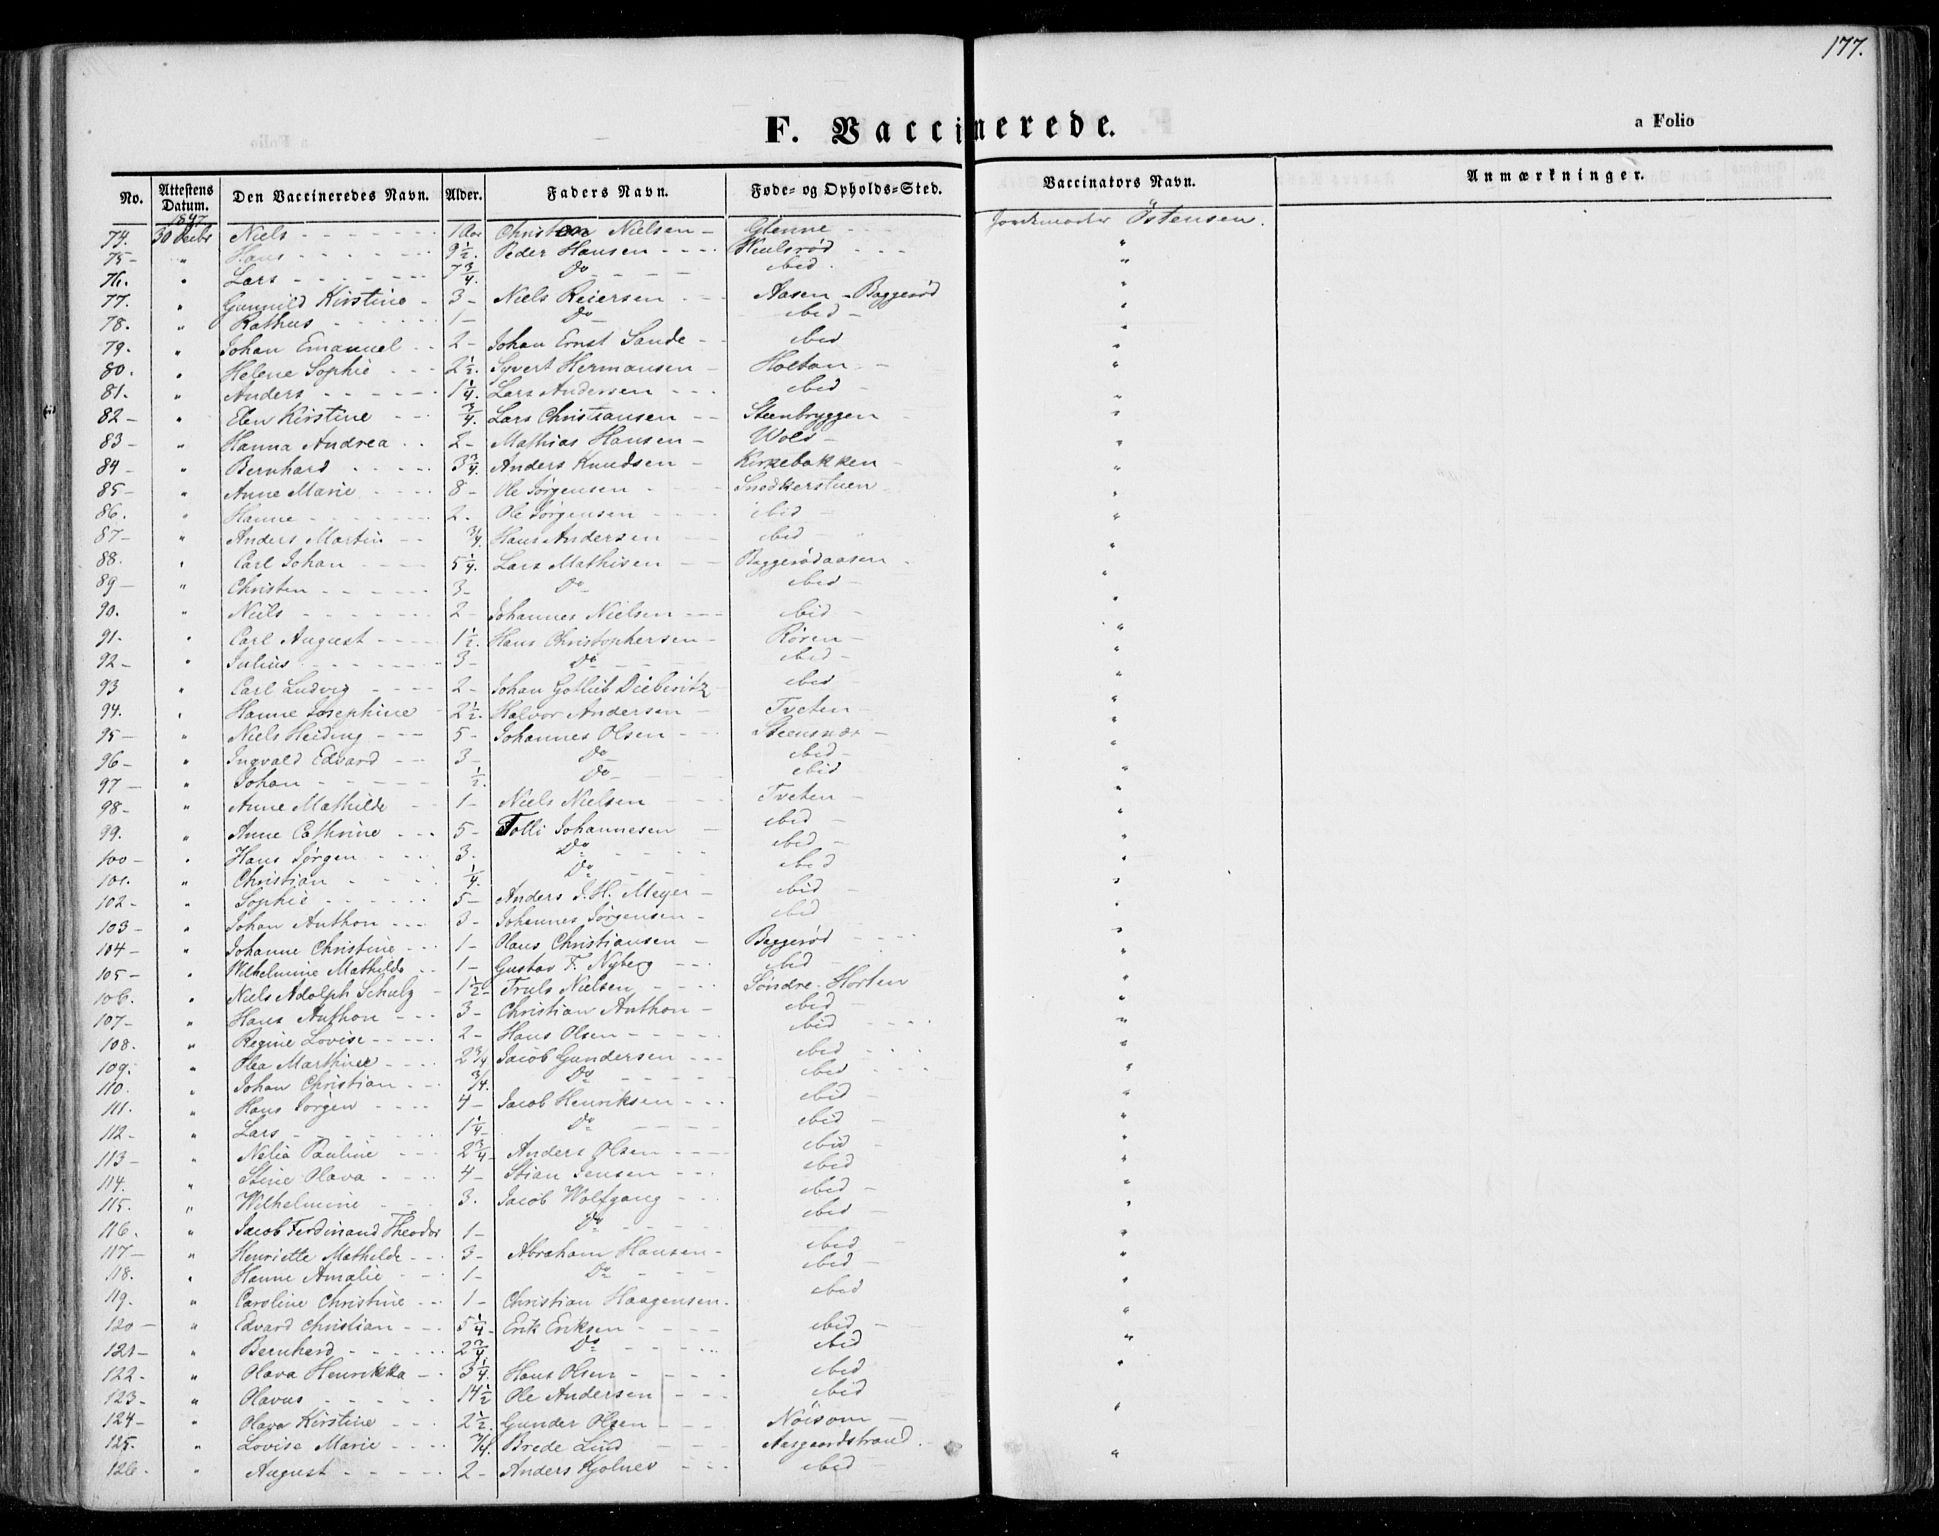 177.
F. Vaccinerede.
a Folio
No. Attestens Datum. Den Vaccineredes Navn. Alder. Faders Navn. Føde- og Opholds-Sted. Vaccinators Navn. Anmærkninger.
1847
74. 30 Decbr Niels - - - 1 Aar Christen Nielsen - Glenne - - Jordemoder Östensen.
75 - " Hans - - - 9 1/2. Peder Hansen - - - - - "
76. " Lars - - - 7 3/4. Do - - - ibid. "
77. " Gunnild Kirstine - 3 - Niels Reiersen - - Aasen - Baggerød "
78. " Rathus - - - 1 - Do ibid - "
79. " Johan Emanuel - - 2 - Johan Ernst Sande - - ibid "
80. " Helene Sophie - - - 2 1/2. Syvert Hermansen - Holtan - "
81. " Anders - - - 1 1/4. Lars Andersen - - - ibid - "
82 - " Elen Kirstine - - - 3/4. Lars Christiansen - - Steenbryggen - "
83 - " Hanna Andrea - - 2 - Mathias Hansen - Wold - "
84 - " Bernhard - - - 3 3/4. Anders Knudsen - - Kirkebakken - "
85 - " Anne Marie - - - 8 - Ole Jørgensen - - Snedkerstuen - "
86. " Hanne - - - 2 - Ole Jørgensen - - - ibid - "
87 - " Anders Martin - - 3/4. Hans Andersen - - - ibid - "
88. " Carl Johan - - - 5 1/4. Lars Mathisen - - Baggerødaasen - "
89 - " Christen - - - 3 - Do ibid - "
90. " Niels - - - 2 - Johannes Nielsen - - - ibid - "
91. " Carl August - - - 1 1/2. Hans Christophersen - Røren - "
92 - " Julius - - - 3 - Do - - - ibid - "
93 " Carl Ludvig - - - 2 - Johan Gotlieb Dieberitz - ibid - "
94. " Hanne Josephine - 2 1/2. Halvor Andersen - Tveten - "
95 - " Niels Heiding - - - 5 - Johannes Olsen - - - Steensnæs - "
96 - " Ingvald Edvard - - 3 - Do ibid - "
97 - " Johan - - - 1/2. Do - - - ibid - "
98 - " Anne Mathilde - - 1 - Niels Nielsen - - - Tveten - "
99. " Anne Cathrine - - - 5 - Tolli Johannesen - ibid - "
100 - " Hans Jørgen - - - 3. Do - - - ibid - "
101. " Christian - - - 1/4. Do - - - ibid "
102 - " Sophie - - - 5 - Anders J. H. Meyer - ibid - "
103 - " Johan Anthon - - - 3 - Johannes Jørgensen - ibid - "
104 - " Johanne Christine - - - 1 - Hans Christiansen - Baggerød - - - "
105 - " Wilhelmine Mathilde - - 1 - Gustav F. Nyberg - - - ibid - "
106. " Niels Adolph Schulz - 1 1/2 - Truls Nielsen - - - Søndre - Horten "
107 - " Hans Anthon - - - 3 - Christian Anthon - ibid - "
108. " Regine Lovise - - - 2 - Hans Olsen - - - ibid - - - "
109. " Olea Marthine - - - 2 3/4 Jacob Gundersen - - - ibid - - - "
110. " Johan Christian - - - 3/4. Do - - - ibid - - - "
111. " Hans Jørgen - - - 4 - Jacob Henriksen - - - ibid - "
112 - " Lars - - - 1 1/4 - Do - - - ibid - "
113 - " Nelia Pauline - - - 2 3/4 - Anders Olsen - - - ibid - "
114. " Stine Olava - - - 4 - Stian Jensen - - - ibid - "
115. " Wilhelmine - - - 3. Jacob Wolfgang - - - ibid - "
116. " Jacob Ferdinand Theodor 1 - Do - - - ibid - "
117 - " Henriette Mathilde - - - 3 - Abraham Hansen - ibid - "
118. " Hanne Amalie - - - 1 - Do - - - ibid - "
119. " Caroline Christine - - 1 - Christian Haagensen - ibid "
120 - " Edvard Christian - - - 5 1/4 - Erik Eriksen - - - ibid - "
121 - " Bernhard - - - 2 3/4. Do - - - ibid "
122 - " Olava Henrikka - - 3 1/4. Hans Olsen - - - ibid - "
123 - " Olavus - - - 14 1/2 Ole Andersen - - - ibid -
124 - " Olava Kirstine - - - 2 1/2. Gunder Olsen - - - Nöisom - "
125. " Lovise Marie - - - 3/4. Brede Lind - - - Aasgaardstrand - "
126. " August - - - 2 - Anders - ibid -